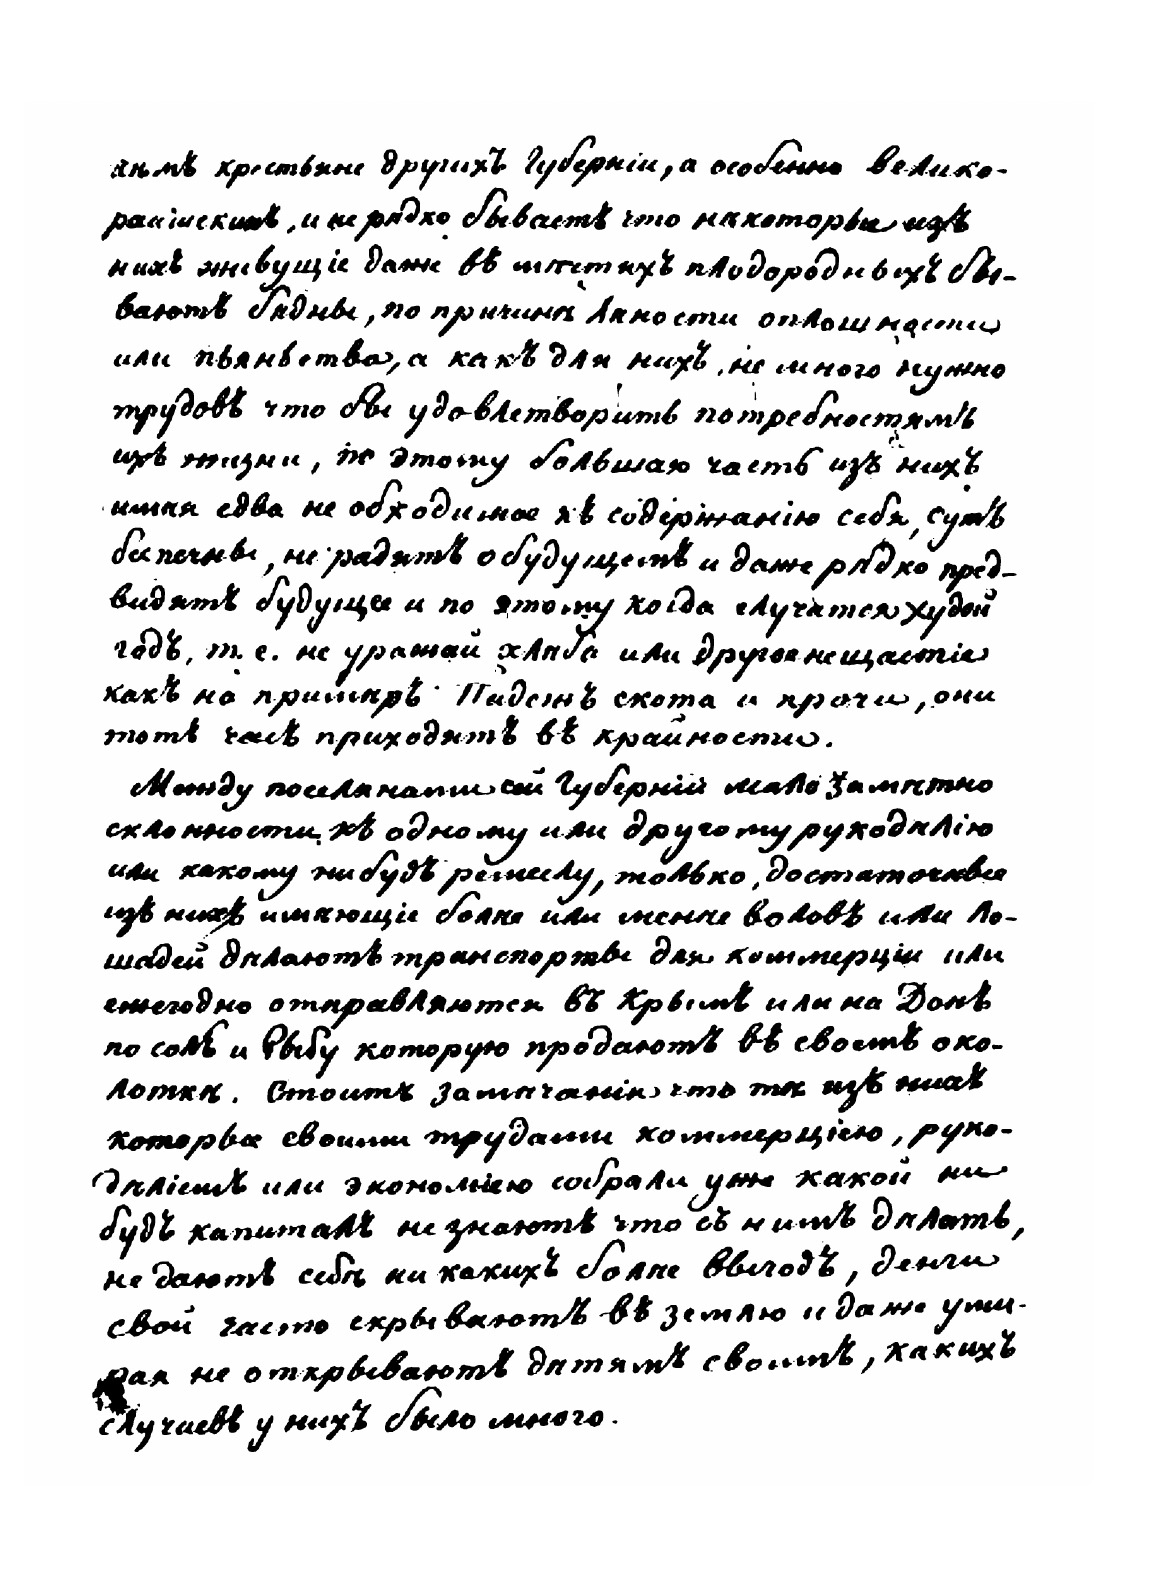 чѣмъ крестьяне другихъ Губерніи, а особенно велико-
расiискимъ, и не рѣдко бываетъ что нѣкоторые изъ
нихъ живущіе даже въ местѣхъ плодородныхъ бы-
ваютъ бѣдны, по причинѣ лѣности оплошности
или пьяньства, а какъ для нихъ не много нужно
трудовъ что бы удовлетворить потребностямъ
ихъ жизни, по этому большаю часть изъ нихъ
имѣя едва не обходимое къ содержанію себя, суть
беспечны, не радятъ о будущемъ и даже рѣдко пред-
видятъ будущее и по этому когда случится худой
годъ, т. е. не урожай хлѣба или другое нещастіе
какъ на примѣръ Падежъ скота и прочи, они
тотъ часъ приходятъ въ крайности.
Между поселянами сей Губерніи мало замѣтно
склонности къ одному или другому рукодѣлію
или какому нибудь ремеслу, только, достаточные
изъ нихъ имѣющіе болѣе или менѣе воловъ или ло-
шадей дѣлаютъ транспорты для коммерціи или
ежегодно отправляются въ Крымъ или на Донъ
по соль и Рыбу которую продаютъ въ своемъ око-
лоткѣ. Стоитъ замѣчанія что тѣ изъ нихъ
которые своими трудами коммерціею, руко-
дѣліемъ или экономіею собрали уже какой ни
будь капиталъ не знаютъ что съ нимъ дѣлать,
не даютъ себѣ ни какихъ болѣе выгодъ, денги
свой часто скрываютъ въ землю и даже уми-
рая не открываютъ дѣтямъ своимъ, какихъ
случаевъ у нихъ было много.